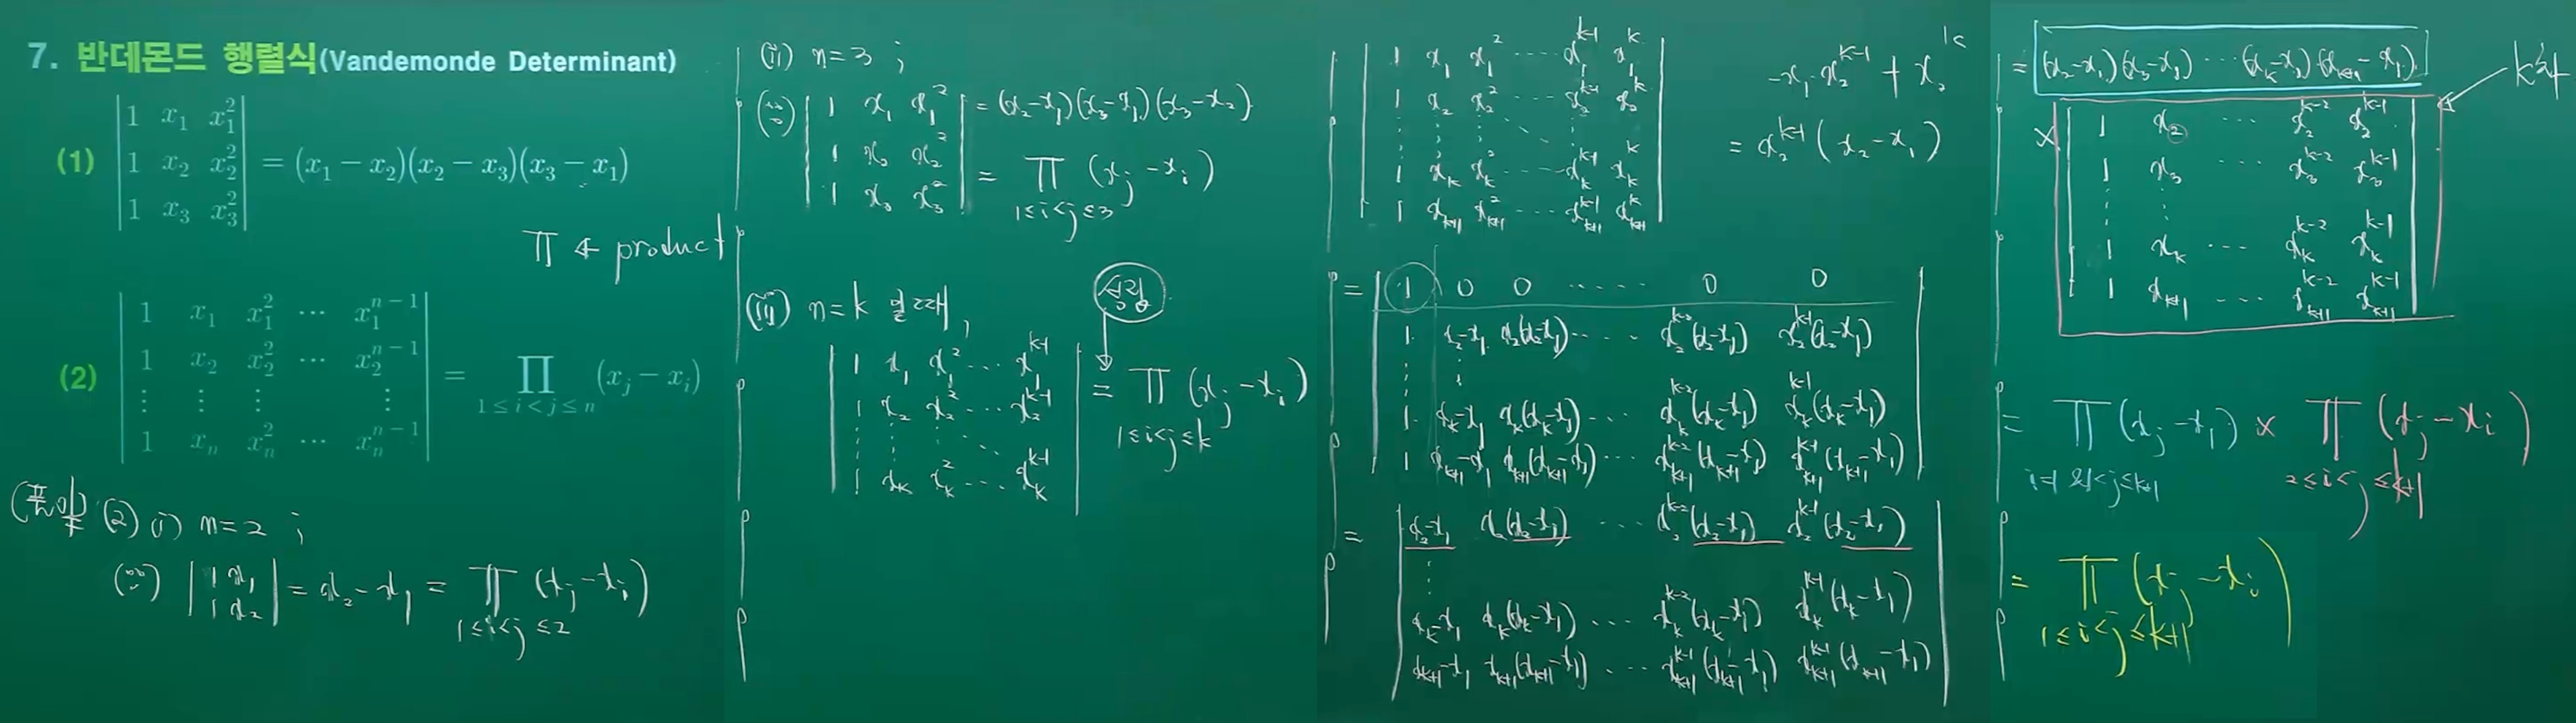 7. 반데몬드 행렬식(Vandemonde Determinant)
(1) | 1 x₁ x₁² |
| 1 x₂ x₂² | = (x₁ − x₂)(x₂ − x₃)(x₃ − x₁)
| 1 x₃ x₃² |
∏ ← product
(2) | 1 x₁ x₁² ⋯ x₁ⁿ⁻¹ |
| 1 x₂ x₂² ⋯ x₂ⁿ⁻¹ |
| ⋮ ⋮ ⋮ ⋮ | = ∏ (x_j − x_i)
1 ≤ i < j ≤ n
| 1 xₙ xₙ² ⋯ xₙⁿ⁻¹ |
(풀이) (2) (i) n=2 ;
| 1 x₁ |
| 1 x₂ | = x₂ − x₁ = ∏ (x_j − x_i)
1≤i<j≤2
(ii) n=3 ;
| 1 x₁ x₁² | = (x₂−x₁)(x₃−x₁)(x₃−x₂)
| 1 x₂ x₂² |
| 1 x₃ x₃² | = ∏ (x_j − x_i)
1≤i<j≤3
(iii) n=k 일때,
성립
| 1 x₁ x₁² ⋯ x₁^{k-1} |
| 1 x₂ x₂² ⋯ x₂^{k-1} | = ∏ (x_j − x_i)
1≤i<j≤k
| ⋮ ⋮ ⋮ ⋱ ⋮ |
| 1 x_k x_k² ⋯ x_k^{k-1} |
| 1 x₁ x₁² ⋯ x₁^{k-1} x₁^k |
| 1 x₂ x₂² ⋯ x₂^{k-1} x₂^k |
| ⋮ ⋮ ⋮ ⋱ ⋮ ⋮ |
| 1 x_k x_k² ⋯ x_k^{k-1} x_k^k |
| 1 x_{k+1} x_{k+1}² ⋯ x_{k+1}^{k-1} x_{k+1}^k |
−x₁x₂^{k-1} + x₂^k
= x₂^{k-1}(x₂−x₁)
= | 1 0 0 ⋯ 0 0 |
| 1 x₂−x₁ x₂(x₂−x₁) ⋯ x₂^{k-2}(x₂−x₁) x₂^{k-1}(x₂−x₁) |
| ⋮ ⋮ |
| 1 x_k−x₁ x_k(x_k−x₁) ⋯ x_k^{k-2}(x_k−x₁) x_k^{k-1}(x_k−x₁) |
| 1 x_{k+1}−x₁ x_{k+1}(x_{k+1}−x₁) ⋯ x_{k+1}^{k-2}(x_{k+1}−x₁) x_{k+1}^{k-1}(x_{k+1}−x₁) |
= | x₂−x₁ x₂(x₂−x₁) ⋯ x₂^{k-2}(x₂−x₁) x₂^{k-1}(x₂−x₁) |
| ⋮ |
| x_k−x₁ x_k(x_k−x₁) ⋯ x_k^{k-2}(x_k−x₁) x_k^{k-1}(x_k−x₁) |
| x_{k+1}−x₁ x_{k+1}(x_{k+1}−x₁) ⋯ x_{k+1}^{k-1}(x_{k+1}−x₁) x_{k+1}^{k-1}(x_{k+1}−x₁) |
= (x₂−x₁)(x₃−x₁) ⋯ (x_k−x₁)(x_{k+1}−x₁)
× | 1 x₂ ⋯ x₂^{k-2} x₂^{k-1} |
| 1 x₃ ⋯ x₃^{k-2} x₃^{k-1} |
| ⋮ ⋮ |
| 1 x_k ⋯ x_k^{k-2} x_k^{k-1} |
| 1 x_{k+1} ⋯ x_{k+1}^{k-2} x_{k+1}^{k-1} |
= ∏ (x_j − x₁) × ∏ (x_j − x_i)
i=1 & 1<j≤k+1 2≤i<j≤k+1
= ∏ (x_j − x_i)
1≤i<j≤k+1